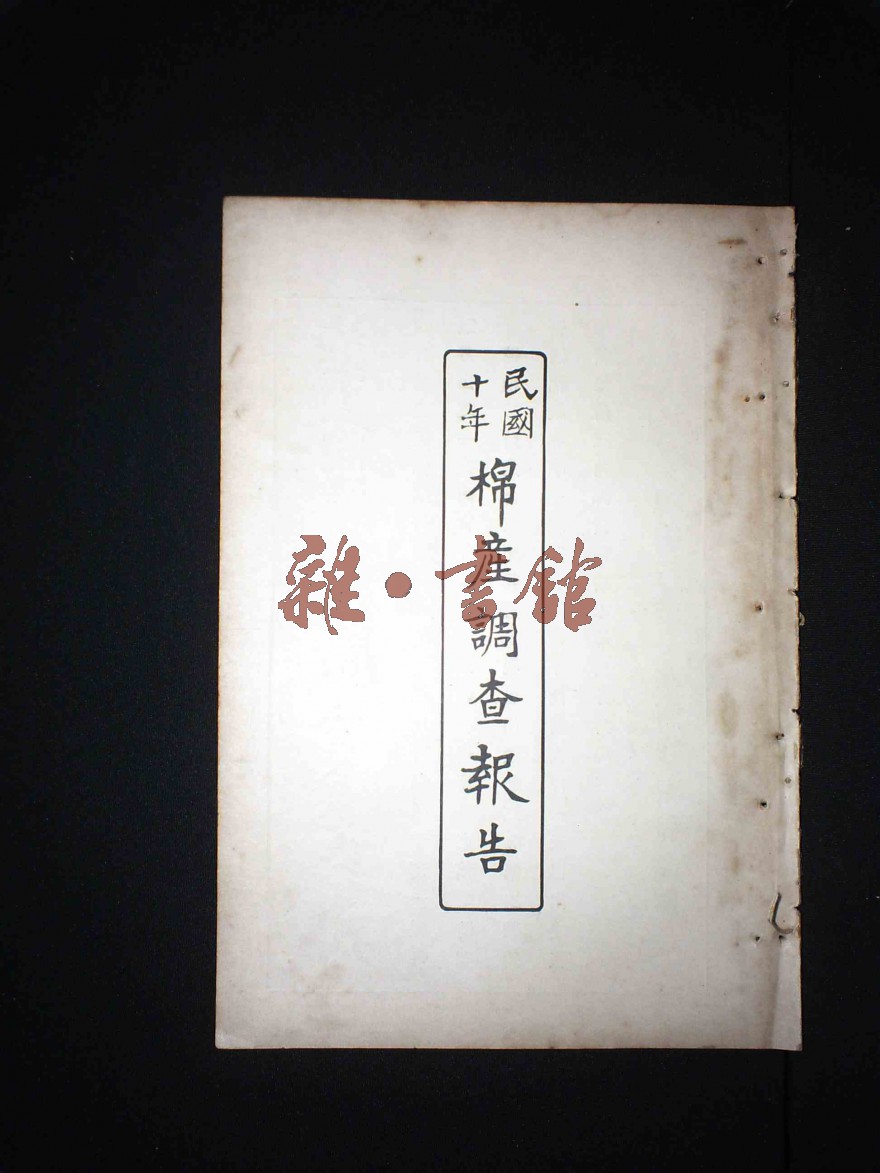 民國
十年
棉産調查報告
雜·書館